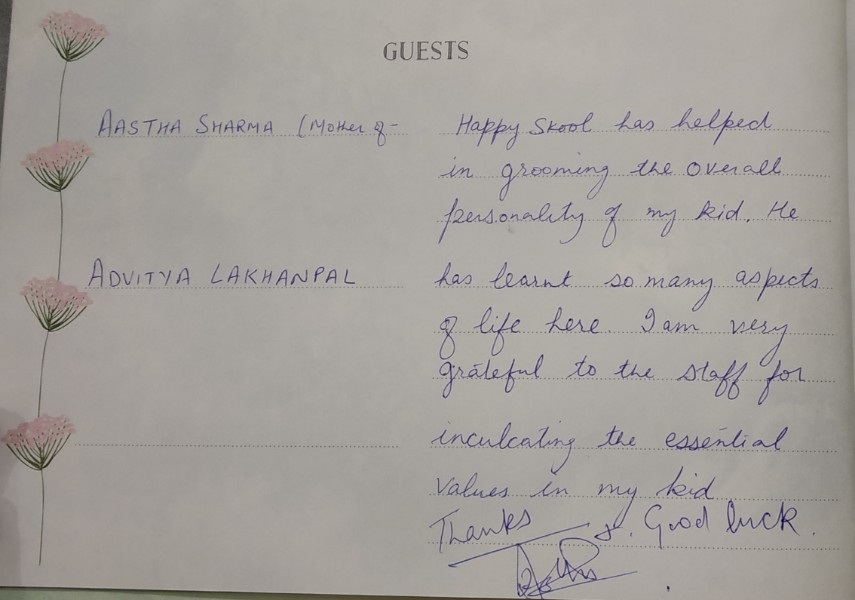 GUESTS
AASTHA SHARMA (Mother of -
ADVITYA LAKHANPAL
Happy Skool has helped
in grooming the overall
personality of my kid. He
has learnt so many aspects
of life here. I am very
grateful to the staff for
inculcating the essential
values in my kid
Thanks &. Good luck.